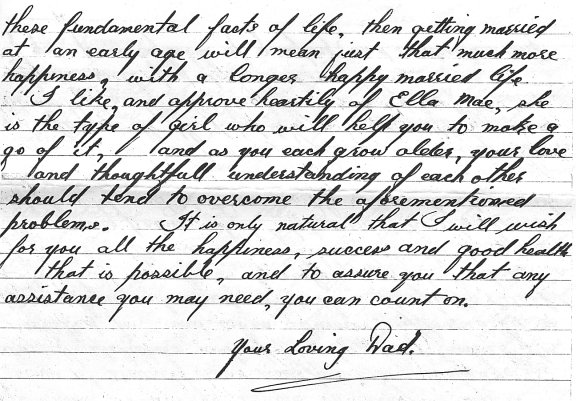 these fundamental facts of life, then getting married
at an early age will mean just that much more
happiness, with a longer happy married life
I like, and approve heartily of Ella Mae, she
is the type of girl who will help you to make a
go of it, and as you each grow older, your love
and thoughtfull understanding of each other
should tend to overcome the aforementioned
problems. It is only natural that I will wish
for you all the happiness, success and good health
that is possible, and to assure you that any
assistance you may need, you can count on.
Your Loving Dad.